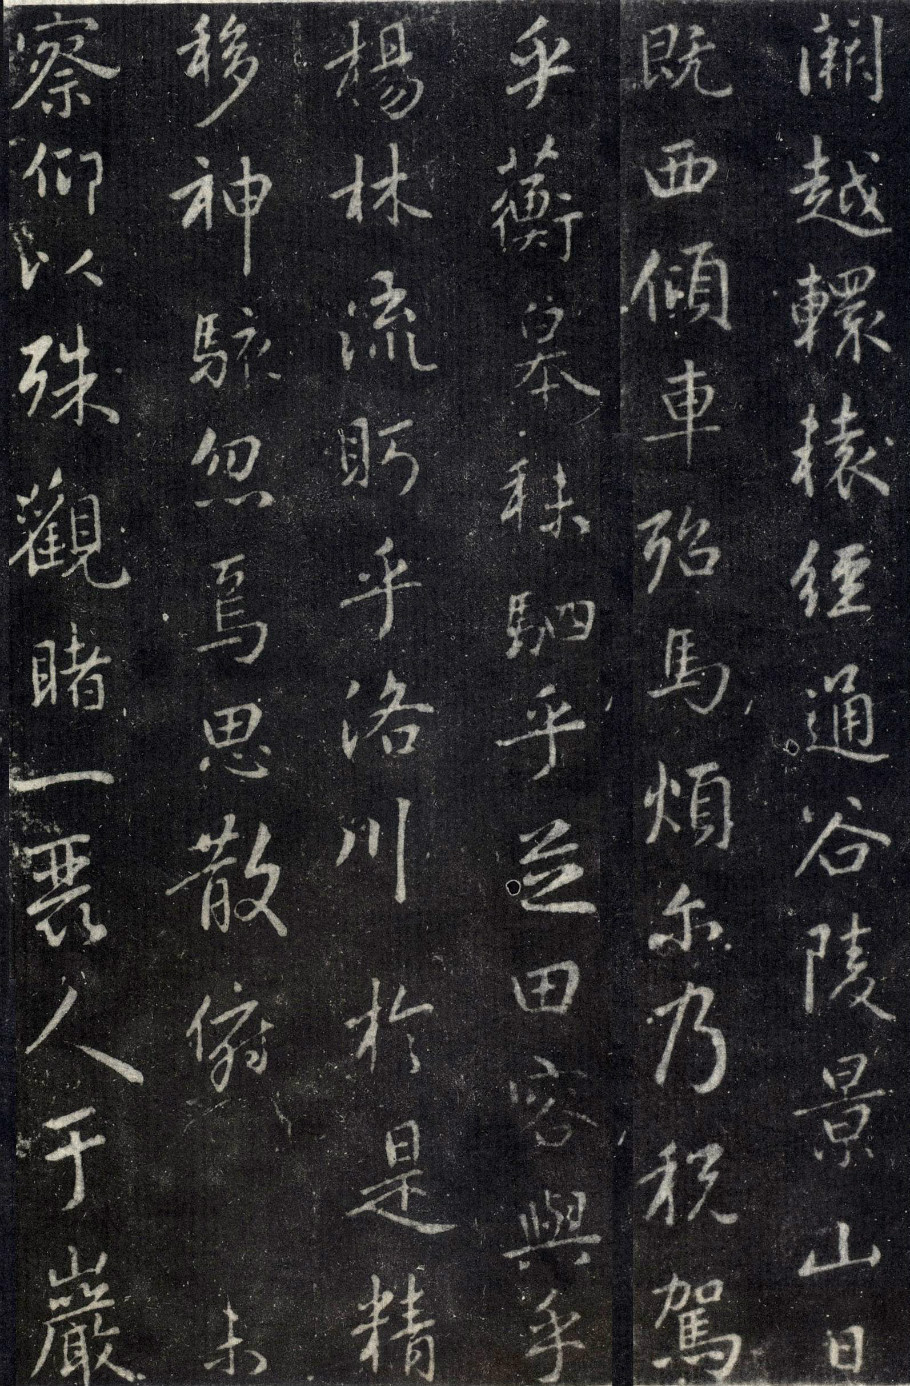 闕越轘轅經通谷陵景山日
既西傾車殆馬煩尔乃税駕
乎蘅皋秣駟乎芝田容與乎
楊林流眄乎洛川於是精
移神駭忽焉思散俯未
察仰以殊觀睹一麗人于巖